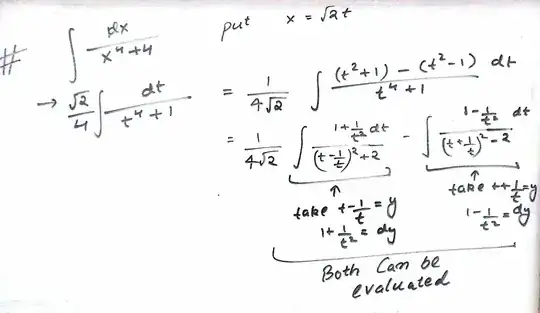 # ∫ dx / x⁴+4 put x = √2 t
→ √2/4 ∫ dt / t⁴+1 = 1/4√2 ∫ (t²+1) − (t²−1) / t⁴+1 dt
= 1/4√2 ∫ 1+1/t² dt / (t−1/t)²+2 − ∫ 1−1/t² dt / (t+1/t)²−2
↑ ↑
take t−1/t = y take t+1/t = y
1+1/t² = dy 1−1/t² = dy
Both Can be
evaluated